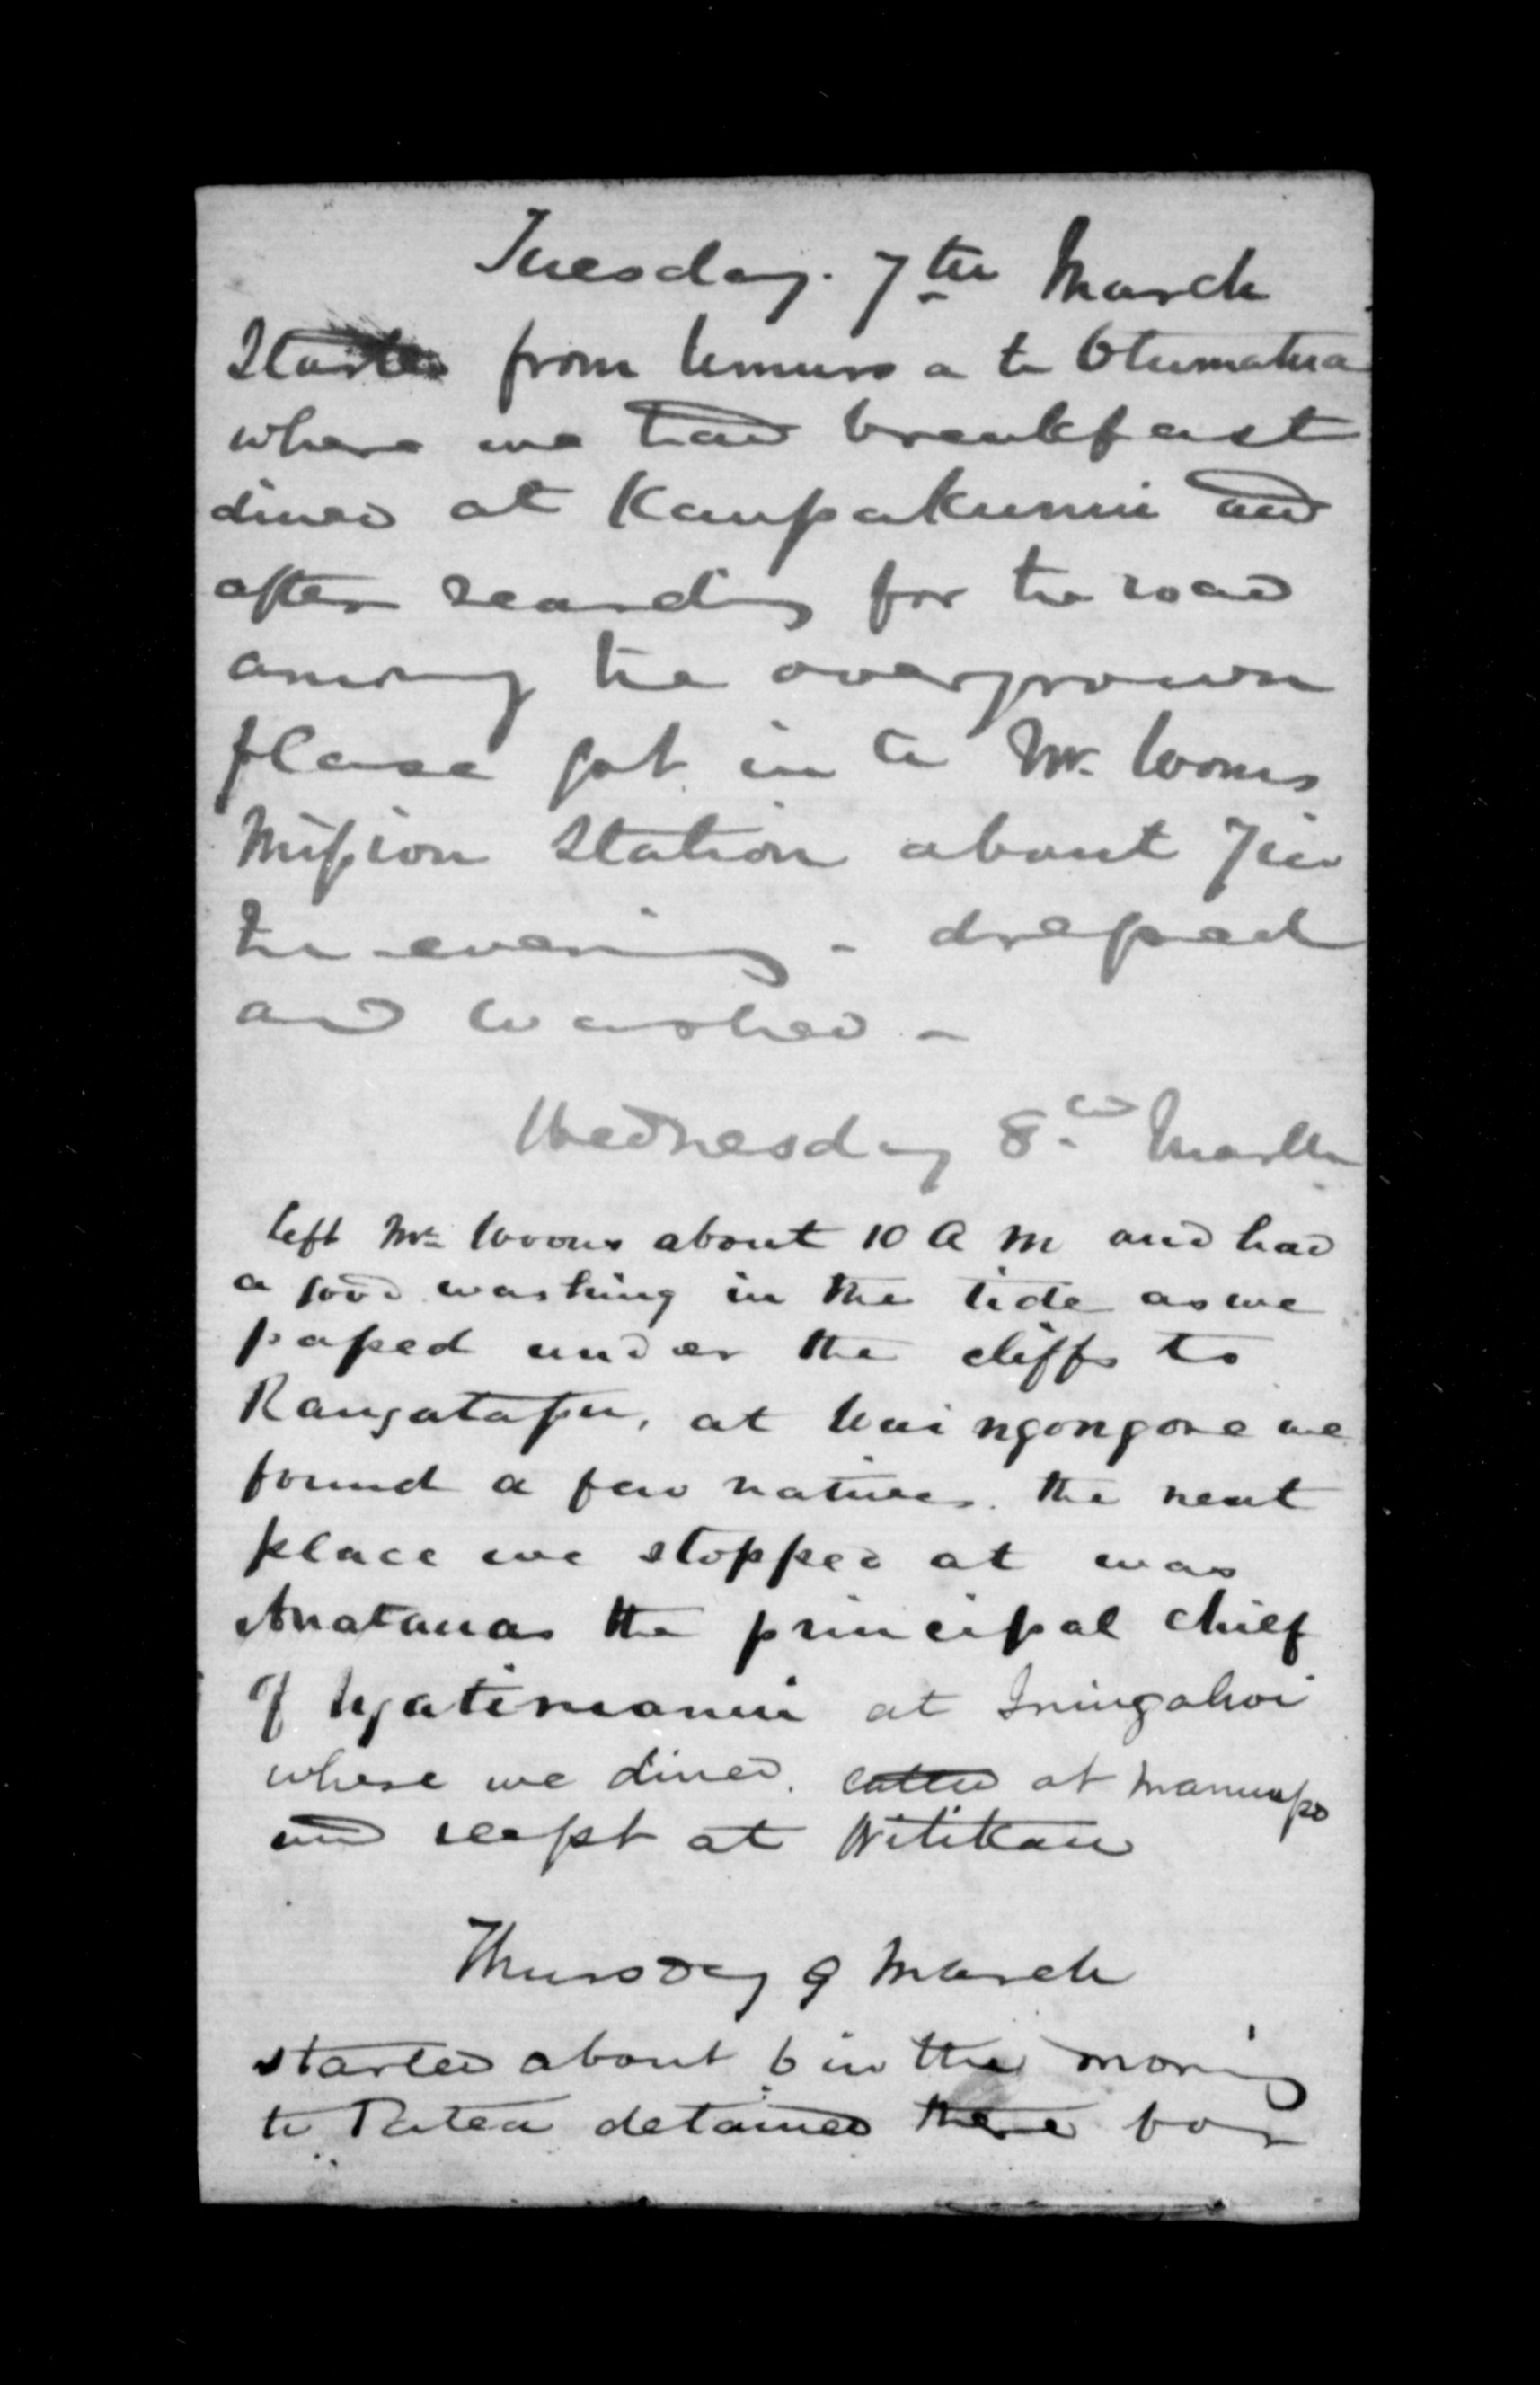 Tuesday. 7th March
Started from Umuroa to Otumatua
where we had breakfast
dined at Kaupakumui and
after searching for the road
among the overgrown
place got in to Mr. Woons
Mission Station about 7 in
the evening - dressed
and washed -
Wednesday 8. March
left Mr Woons about 10 A M and had
a good washing in the tide as we
passed under the cliffs to
Rangatapu, at Wai ngongoro we
found a few natives. the next
place we stopped at was
the principal chief
of Ngatimanui at Iningahoi
where we dined. called at Manuapo
and slept at Witikau
Thursday 9 March
started about 6 in the morning
to Patea detained there for